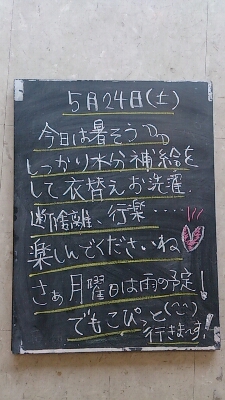 5月24日(土)
今日は暑そう
しっかり水分補給を
して衣替えお洗濯、
断捨離、行楽‥‥
楽しんでくださいね
さぁ月曜日は雨の予定!
でもこぴっと(^^)
行きま~す!